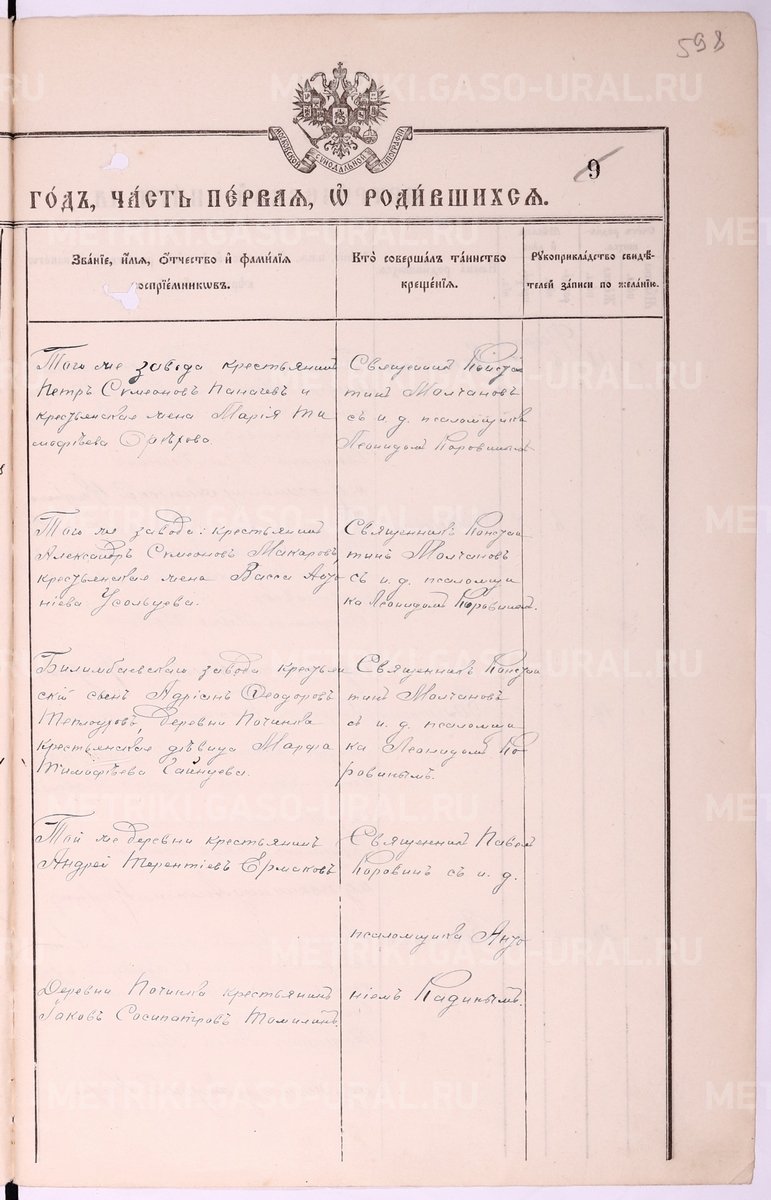 598
МОСКОВСКОЙ СѴНОДАЛЬНОЙ ТИПОГРАФІИ
9
ГО́ДЪ, ЧА́СТЬ ПЕ́РВАЯ, Ѡ҆ РОДИ́ВШИХСЯ.
Зва́нїе, и҆́мя, ѻ҆́тчество и҆ фами́лїя
воспрїе́мникωвъ.
Кто̀ соверша́лъ та́инство
креще́нїя.
Рꙋкоприкла́дство свидѣ́-
телей за́писи по жела́нїю.
Того же завода крестьянинъ
Петръ Сѵмеоновъ Паначевъ и
крестьянская жена Марія Ти
мофѣева Орѣхова.
Священникъ Констан
тинъ Молчановъ
съ и. д. псаломщика
Леонидомъ Коровинымъ
Того же завода: крестьянинъ
Александръ Сѵмеоновъ Макаровъ,
крестьянская жена Васса Анто
ніева Усольцева.
Священникъ Констан
тинъ Молчановъ
съ и. д. псаломщи
ка Леонидомъ Коровинымъ.
Билимбаевскаго завода крестьян
скій сынъ Адріанъ Ѳеодоровъ
Теплоуховъ, деревни Починка
крестьянская дѣвица Марѳа
Тимофѣева Гайнцева.
Священникъ Констан
тинъ Молчановъ
съ и. д. псаломщи
ка Леонидомъ Ко
ровинымъ.
Той же деревни крестьянинъ
Андрей Терентіевъ Ермаковъ
Священникъ Павелъ
Коровинъ съ и. д.
псаломщика Анто
ніемъ Кадинымъ.
Деревни Починка крестьянинъ
Іаковъ Сосипатровъ Томилинъ.
METRIKI.GASO-URAL.RU